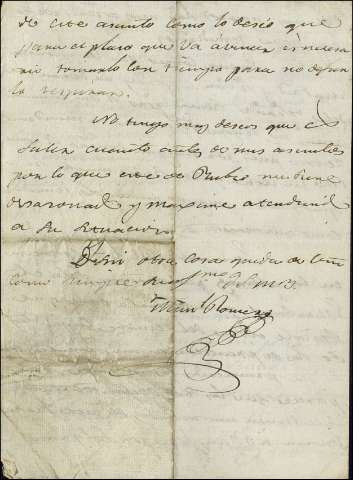 de este asunto como lo deseo que
para el plazo que va a vencer es necesa
rio tomarlo con tiempo para no dejar
lo respirar.
No tengo mas deseos que el
salir cuanto antes de mis asuntos
por lo que este de Rubio me tiene
desazonad y maxime atendiend
a su situacion
Sin otra cosa queda de Um
como siempre
Man.l Romero